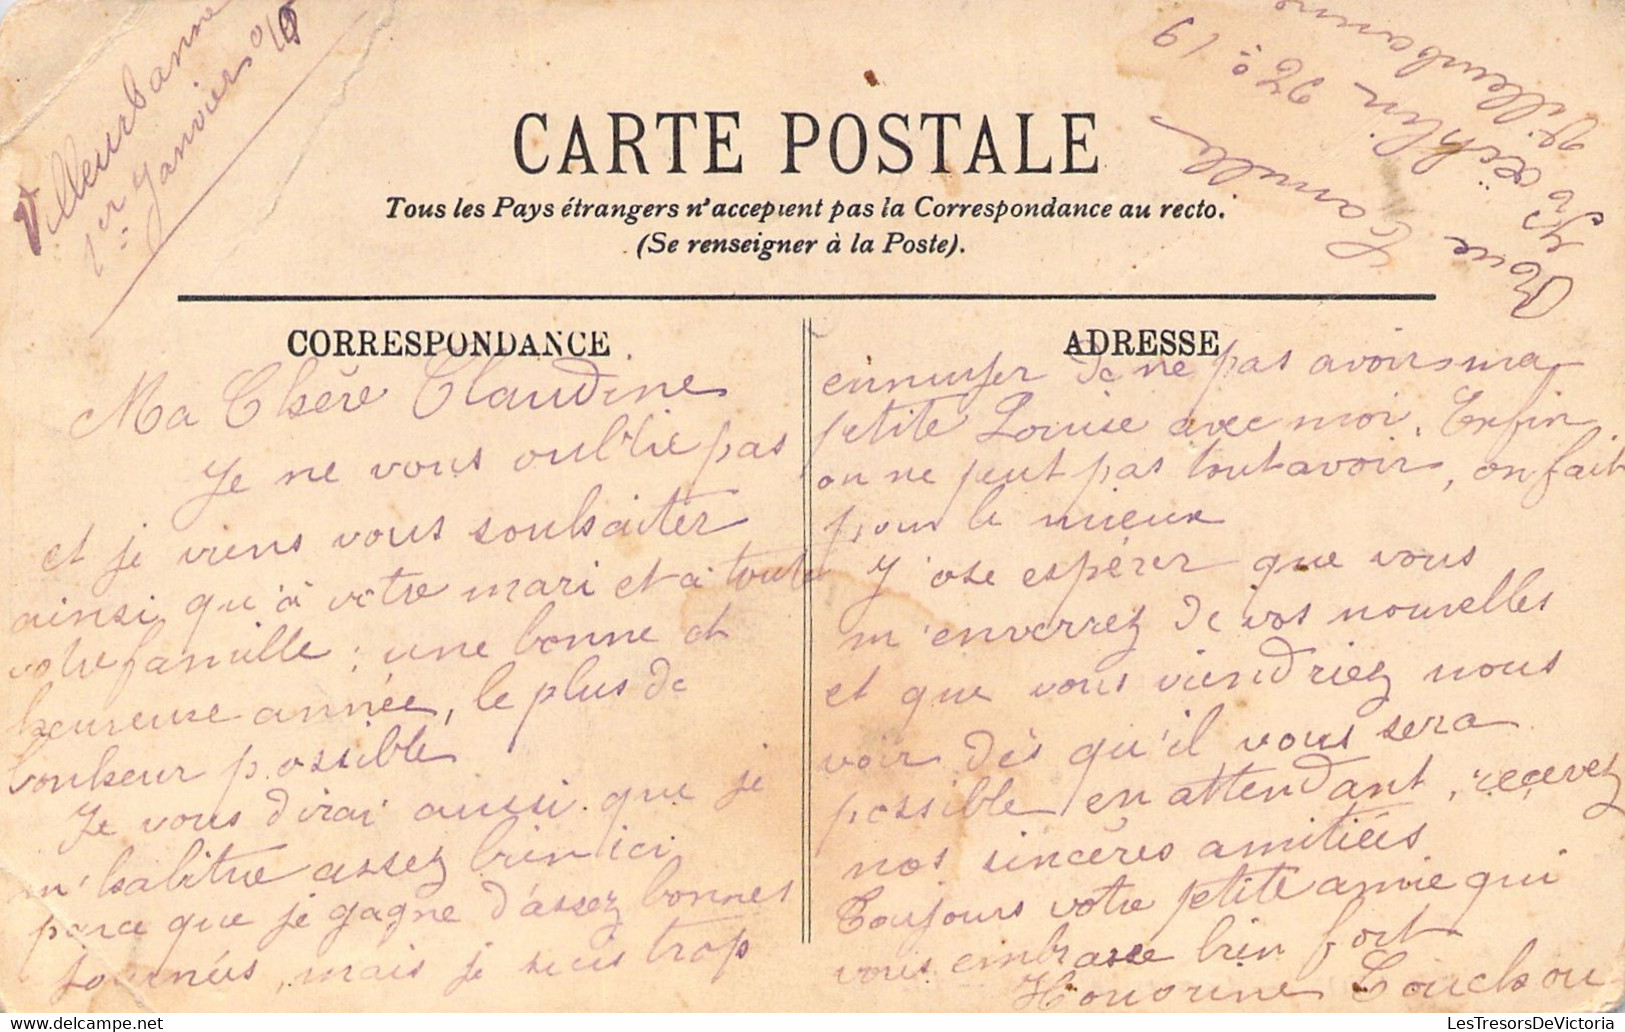 Villeurbanne
1er Janvier
CARTE POSTALE
Tous les Pays étrangers n'acceptent pas la Correspondance au recto.
(Se renseigner à la Poste).
Rue Camille
Kœchlin N°: 19
Villeurbanne
CORRESPONDANCE
Ma Chère Claudine
Je ne vous oublie pas
et je viens vous souhaiter
ainsi qu'à votre mari et à toute
votre famille : une bonne et
heureuse année, le plus de
bonheur possible
Je vous dirai aussi que je
m'habitue assez bien ici
parce que je gagne d'assez bonnes
journées, mais je suis trop
ADRESSE
ennuyer de ne pas avoir ma
petite Louise avec moi. Enfin
on ne peut pas tout avoir, on fait
pour le mieux
J'ose espérer que vous
m'enverrez de vos nouvelles
et que vous viendriez nous
voir dès qu'il vous sera
possible en attendant, recevez
nos sincères amitiées
Toujours votre petite amie qui
vous embrasse bien fort
Honorine
LesTresorsDeVictoria